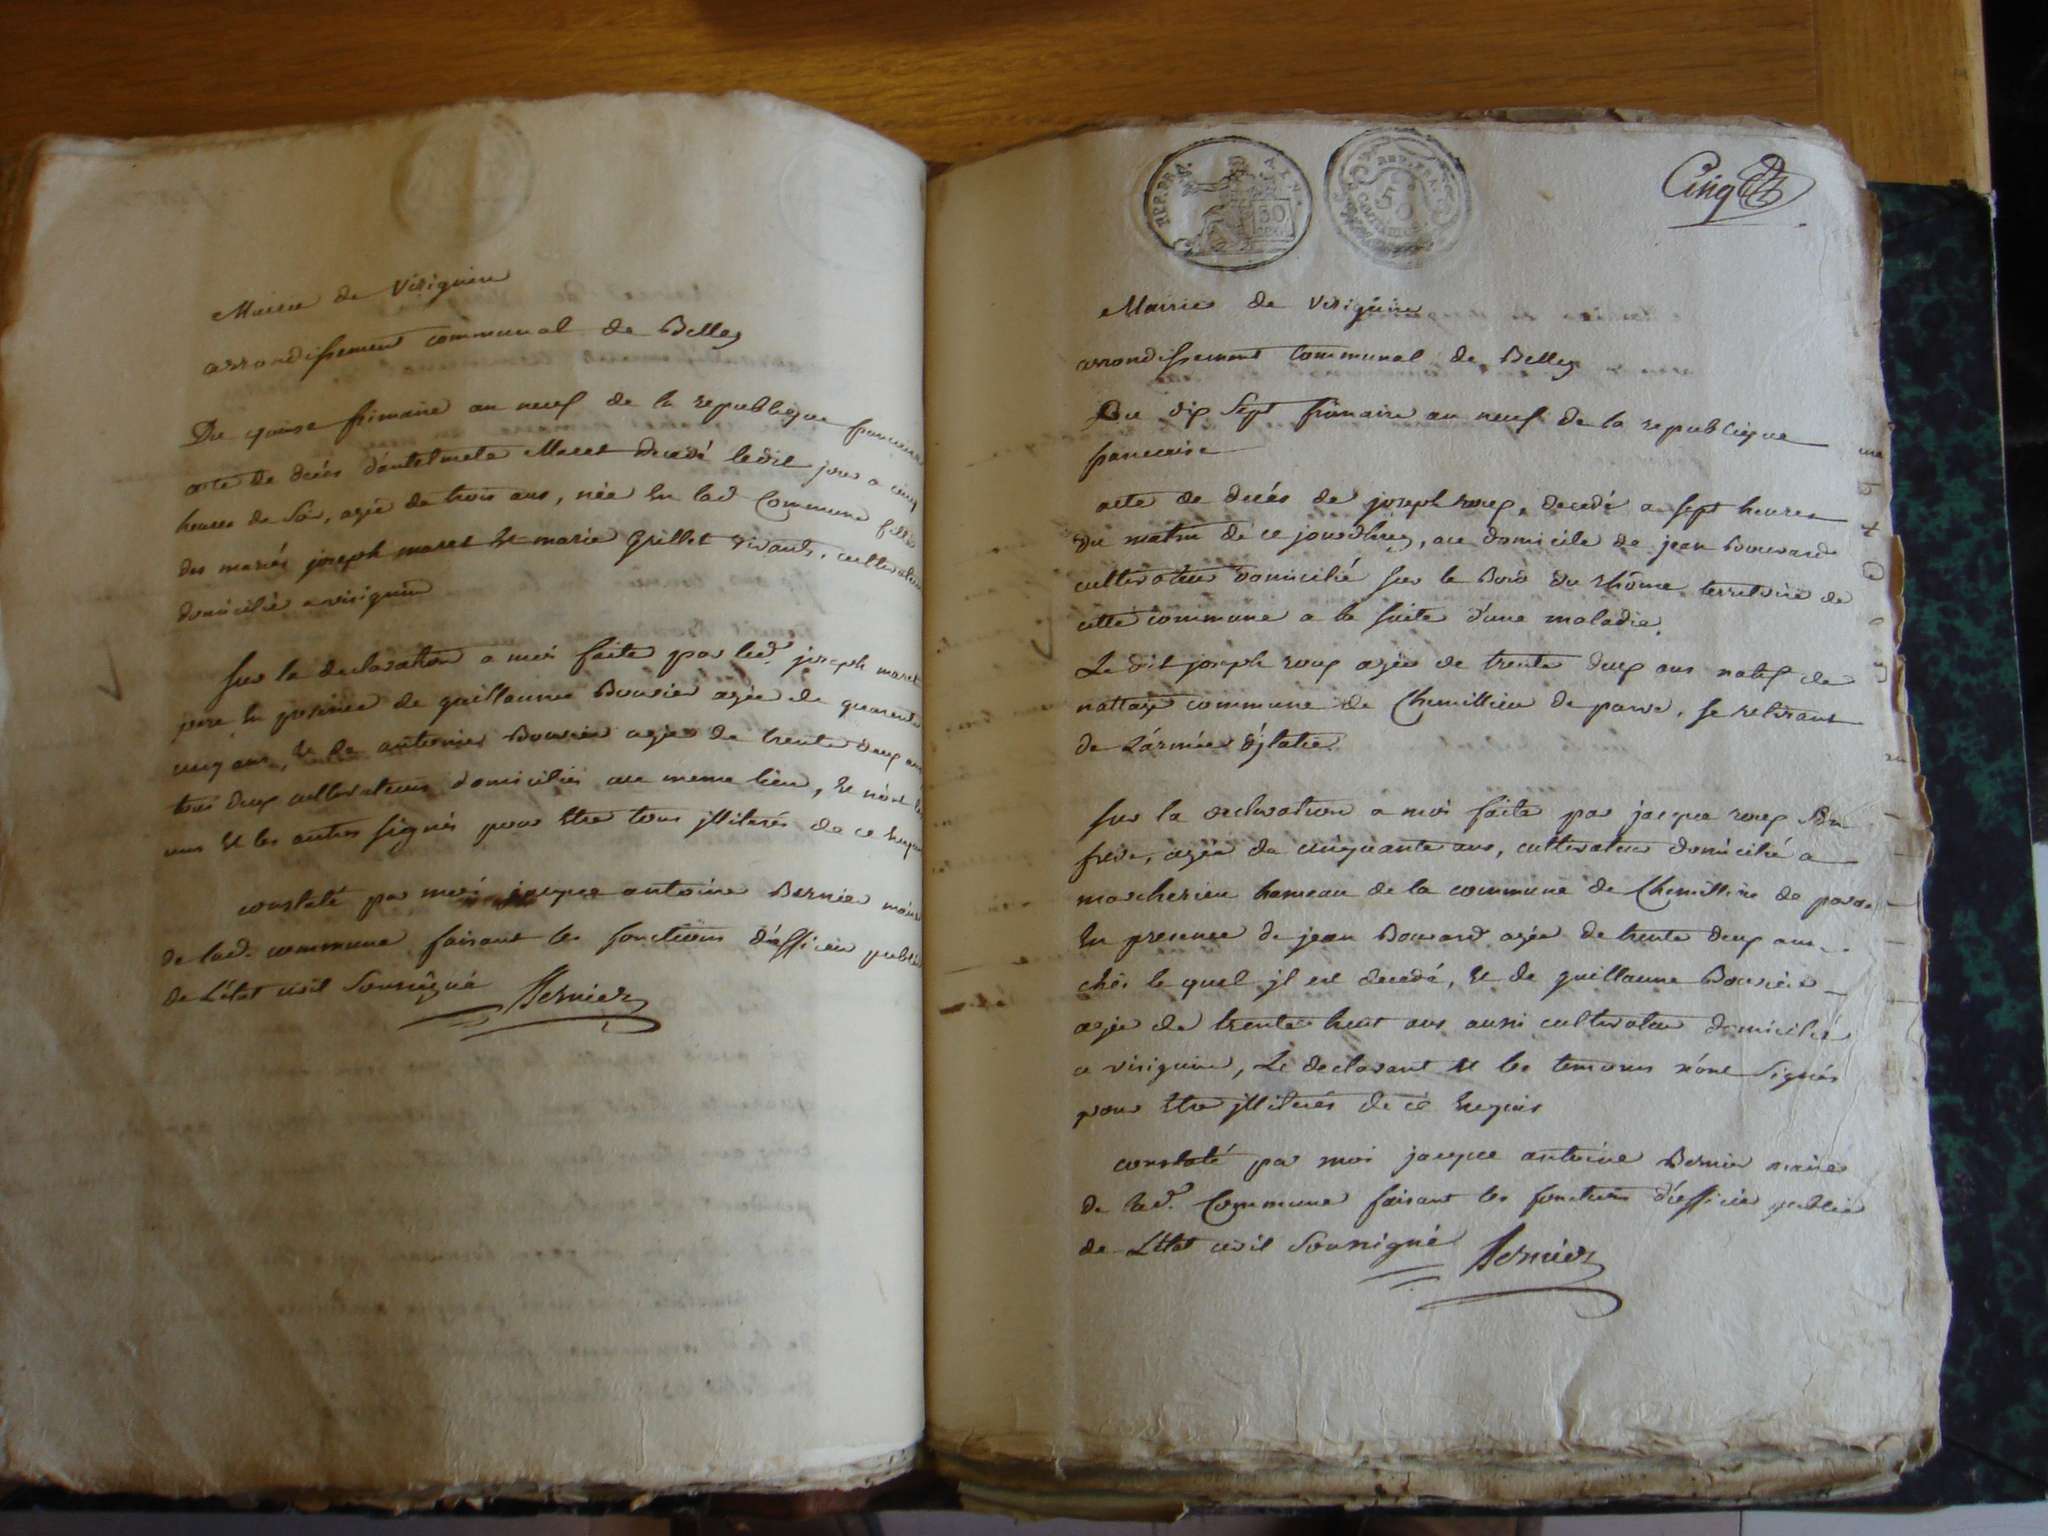 Mairie de Virignin
arrondissement communal de Belley
Du quinze frimaire an neuf de la republique francaise
acte de décés d'antelmete Maret decedé ledit jour a cinq
heures de soir, agée de trois ans, née en lad. Commune fille
des mariés joseph maret et marie Grillet vivants, cultivateurs
domiciliés a virignin
Sur la declaration a moi faite par led. joseph maret
pere en presence de guillaume Bouvier agée de quarante
cinq ans, et de antoine Bouvier agée de trente deux ans
tous deux cultivateurs domiciliés au meme lieu, et n'ont les
uns et les autres signés pour etre tous illiterés de ce enquis
constaté par moi jacque antoine Bernier maire
de lad. commune faisant les fonctions d'officier public
de L'état civil Soussigné Bernier
REP. FRA.
50
REP. FRA.
50
CENTIMES
Cinq
Mairie de virignin
arrondissement communal de Belley
Du dix Sept frimaire an neuf de la republique
francaise
acte de décés de joseph roux, decedé a sept heures
du matin de ce jourdhuy, au domicile de jean Bouvard
cultivateur domicilié sur le Bord du rhône territoire de
cette commune a la suite d'une maladie.
Le dit joseph roux agée de trente deux ans natif de
nattage commune de Chemillieu de parve, se retirant
de L'armée d'jtalie
Sur la declaration a moi faite par jacque roux son
frere, agée de cinquante ans, cultivateur domicilié a
marcherieu hameau de la commune de Chemillieu de parve
En presence de jean Bouvard agée de trente deux ans
chéz le quel jl est decedé, et de guillaume Bouvier
agée de trente huit ans aussi cultivateur domicilié
a virignin, Le declarant et les temoins n'ont Signés
pour etre jlliterés de ce Enquis
constaté par moi jacque antoine Bernier maire
de lad. Commune faisant les fonctions d'officier public
de L'état civil Soussigné Bernier